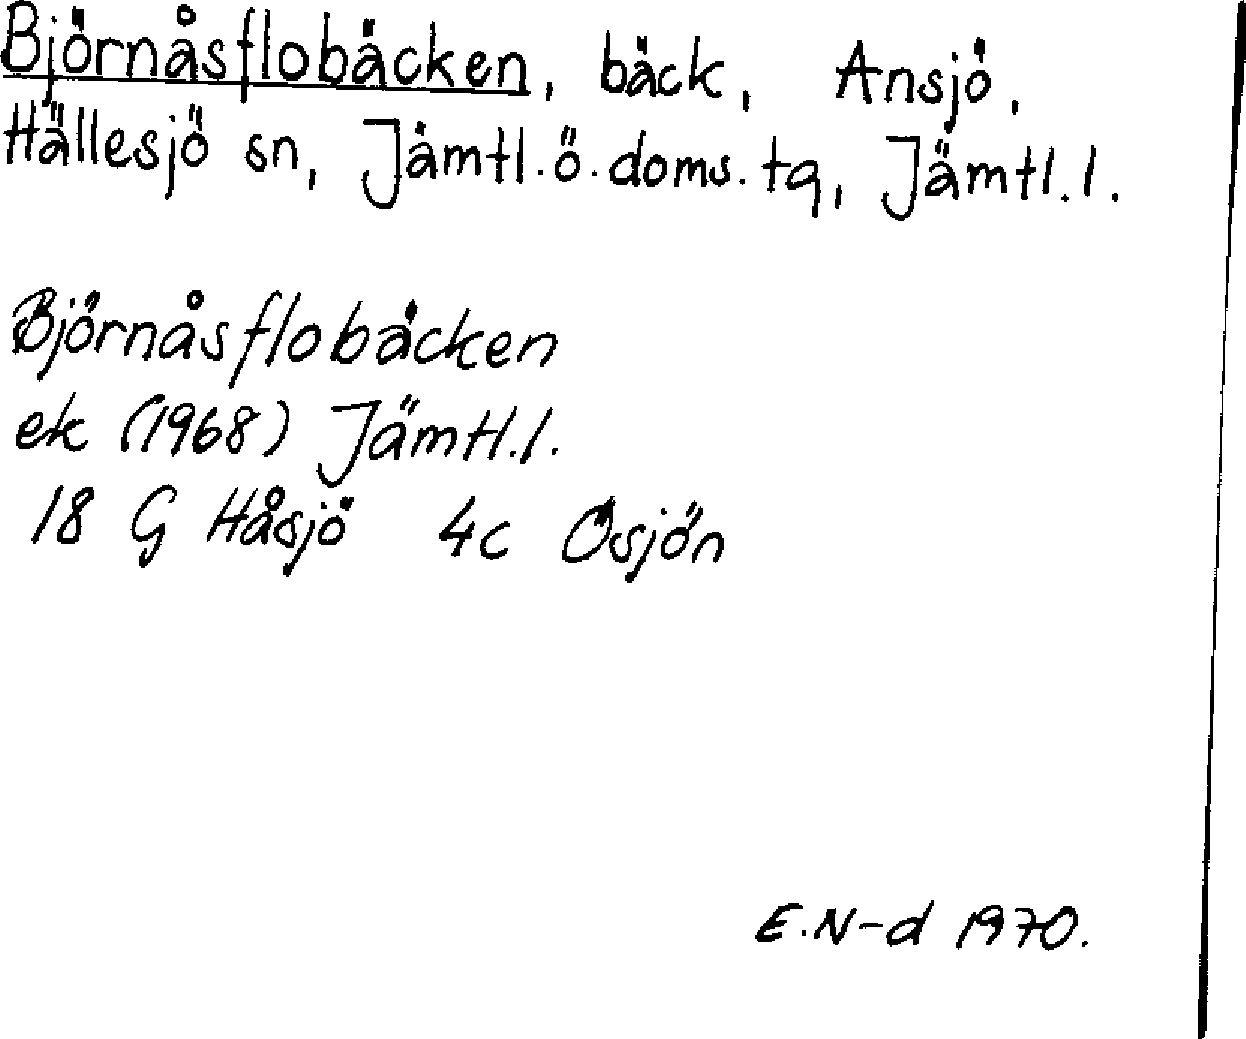 Björnåsflobäcken, bäck, Ansjö,
Hällesjö sn, Jämtl.ö.doms.tg, Jämtl.l.
Björnåsflobäcken
ek (1968) Jämtl.l.
18 G Håsjö 4c Ösjön
E.N-d 1970.